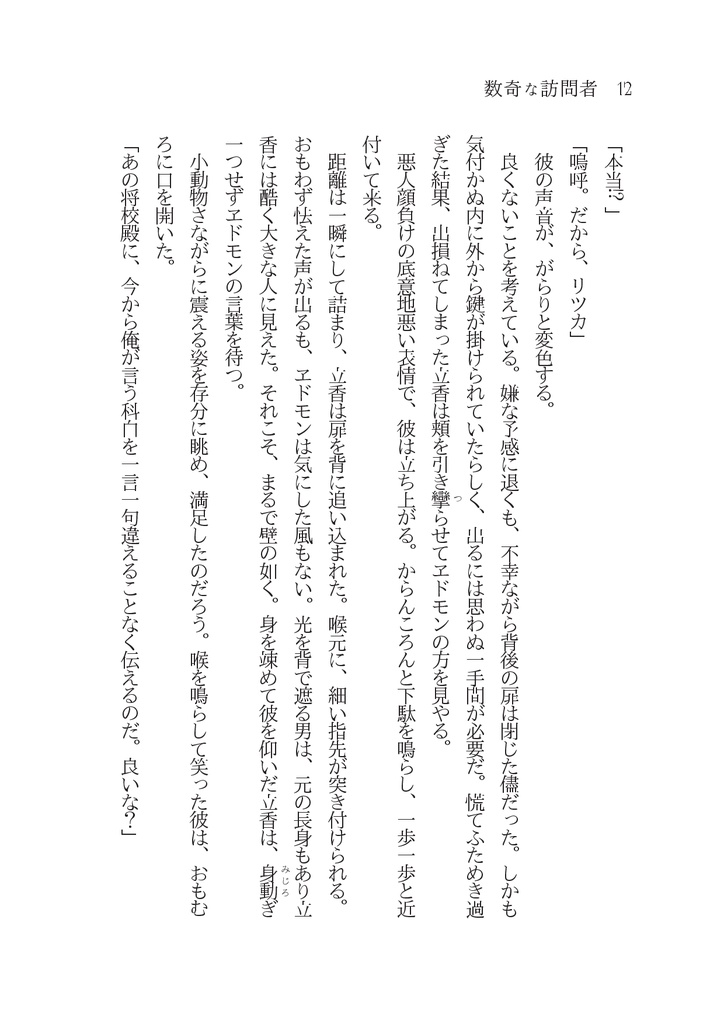 数奇な訪問者　12
「本当!?」
「嗚呼。だから、リツカ」
彼の声音が、がらりと変色する。
良くないことを考えている。嫌な予感に退くも、不幸ながら背後の扉は閉じた儘だった。しかも
気付かぬ内に外から鍵が掛けられていたらしく、出るには思わぬ一手間が必要だ。慌てふためき過
ぎた結果、出損ねてしまった立香は頬を引き攣らせてヱドモンの方を見やる。
っ
悪人顔負けの底意地悪い表情で、彼は立ち上がる。からんころんと下駄を鳴らし、一歩一歩と近
付いて来る。
距離は一瞬にして詰まり、立香は扉を背に追い込まれた。喉元に、細い指先が突き付けられる。
おもわず怯えた声が出るも、ヱドモンは気にした風もない。光を背で遮る男は、元の長身もあり立
香には酷く大きな人に見えた。それこそ、まるで壁の如く。身を竦めて彼を仰いだ立香は、身動ぎ
みじろ
一つせずヱドモンの言葉を待つ。
小動物さながらに震える姿を存分に眺め、満足したのだろう。喉を鳴らして笑った彼は、おもむ
ろに口を開いた。
「あの将校殿に、今から俺が言う科白を一言一句違えることなく伝えるのだ。良いな？」